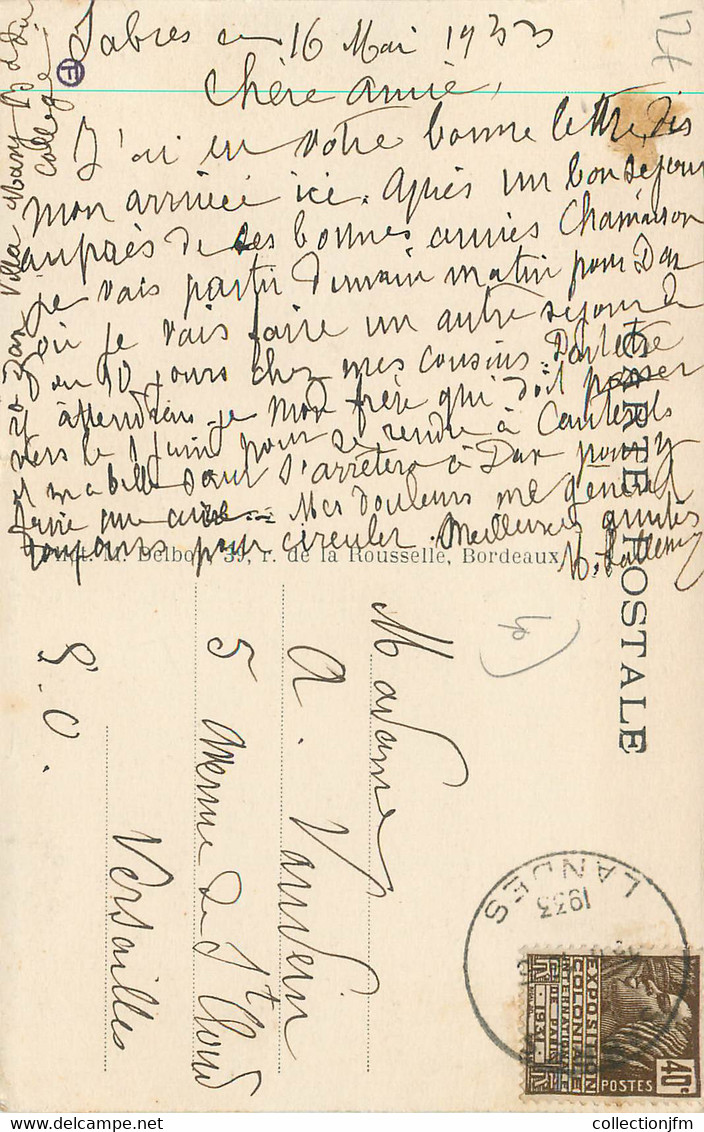 Sabres 16 Mai 1933
Chère amie,
J'ai eu votre bonne lettre dès
mon arrivée ici. Après un bon séjour
auprès de bonnes amies
je vais partir demain matin pour Dax
où je vais faire un autre séjour de
10 jours chez mes cousins
j'attendrai mon frère qui doit passer
vers le 1 juin pour se rendre à Cauterets
et ma belle sœur s'arrêtera à Dax pour y
faire une cure. Mes douleurs me gênent
toujours pour circuler. Meilleures amitiés
Dax Villa Mary Bd du
Collège
F
124
CARTE POSTALE
M. Delboy, 39, r. de la Rousselle, Bordeaux
Madame
A.
5 Avenue de St Cloud
Versailles
S. O.
LANDES
1933
EXPOSITION
COLONIALE
INTERNATIONALE
DE PARIS
1931
POSTES
40c
www.collectionjfm.com